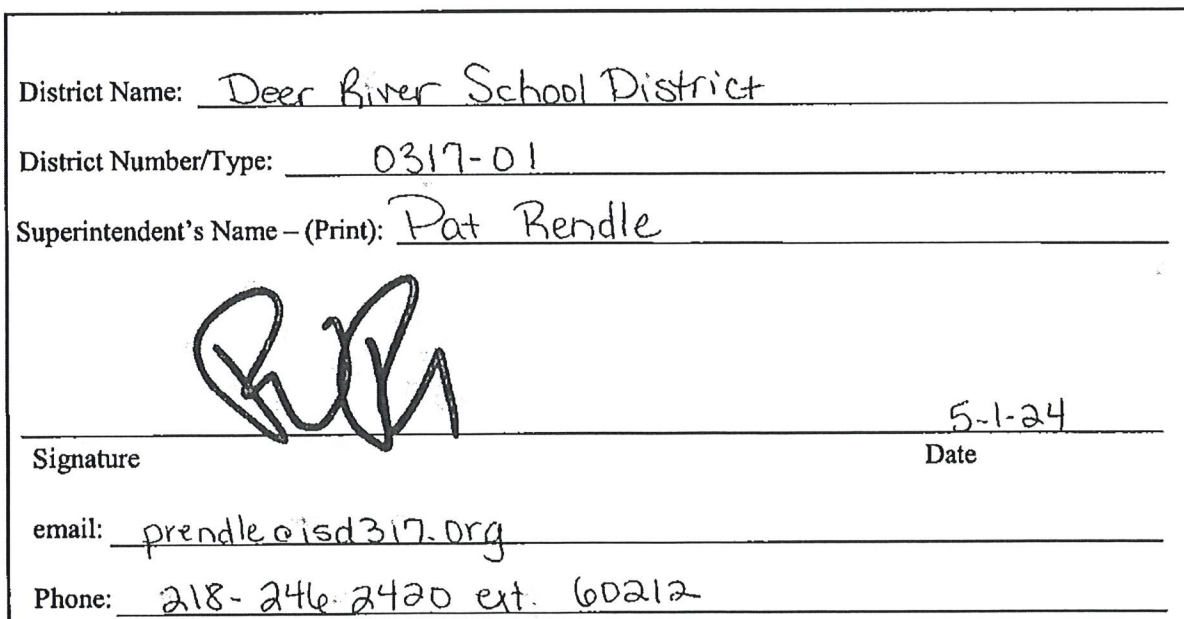 District Name: Deer River School District
District Number/Type: 0317-01
Superintendent's Name – (Print): Pat Rendle
5-1-24
Signature Date
email: prendle@isd317.org
Phone: 218-246-2420 ext. 60212